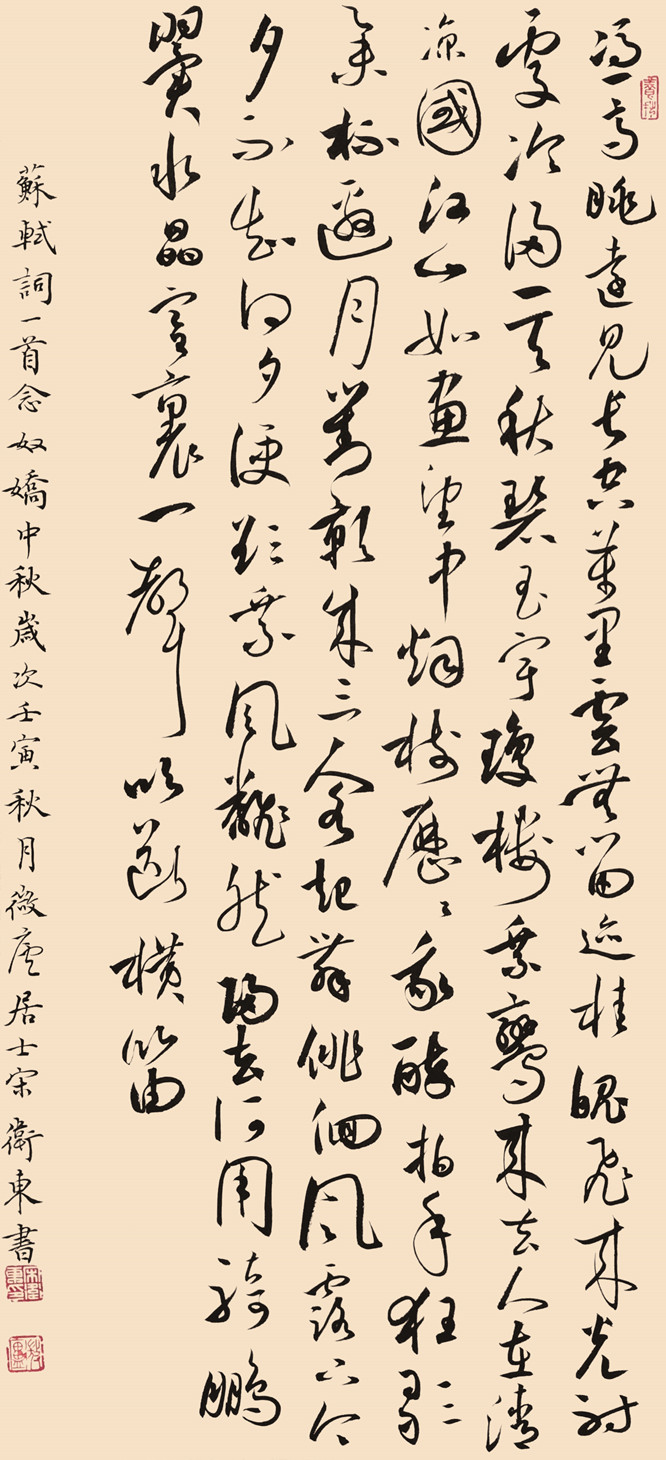 憑高眺遠見長空萬里雲無留迹桂魄飛來光射
處冷浸一天秋碧玉宇瓊樓乘鸞來去人在清
涼國江山如畫望中烟樹歷歷我醉拍手狂歌
舉杯邀月對影成三客起舞徘徊風露下今
夕不知何夕便欲乘風翻然歸去何用騎鵬
翼水晶宮裏一聲吹斷橫笛
蘇軾詞一首念奴嬌中秋歲次壬寅秋月微廬居士宋衛東書